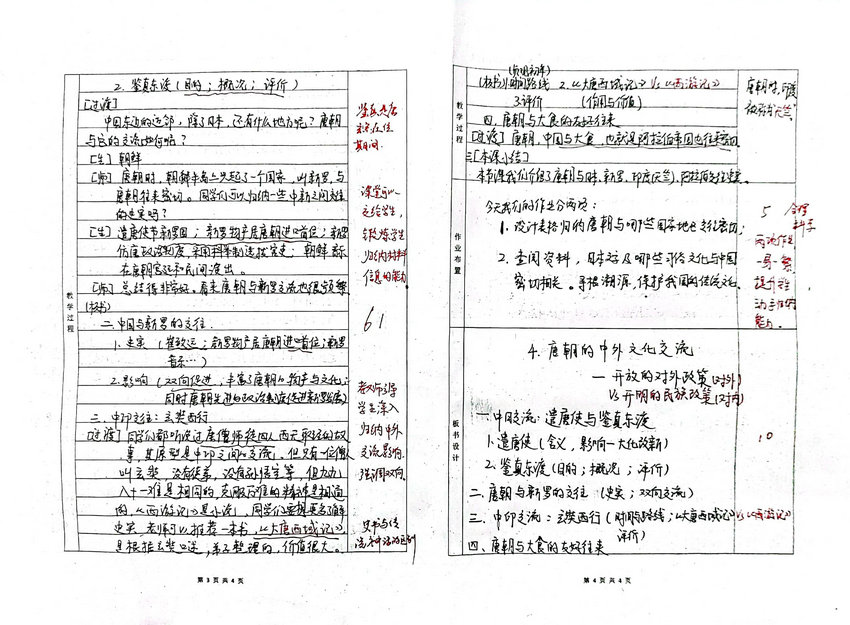 2. 鉴真东渡(目的;概况;评价)
[过渡]
中国东边的近邻,除了日本,还有什么地方呢?唐朝
与它的交流如何呢?
[生] 朝鲜
[师] 唐朝时,朝鲜半岛上兴起了一个国家,叫新罗,与
唐朝往来密切。同学们可以归纳一些中新之间交往
的史实吗?
[生] 遣唐使节新罗国;新罗物产居唐朝进口首位;新罗
仿唐政治制度,采用科举制选拔官吏;朝鲜音乐
在唐朝宫廷和民间演出。
[师] 总结得非常好。看来唐朝与新罗交流也很频繁
(板书)
二、中国与新罗的交往
1. 史实(崔致远;新罗物产居唐朝进口首位;新罗
音乐…)
2. 影响(双向促进,丰富了唐朝的物产与文化;
同时唐朝先进的政治制度促进新罗发展)
三、中印交往:玄奘西行
[过渡] 同学们都听说过唐僧师徒四人西天取经的故
事,其原型是中印之间的交流。但只有一位僧人
叫玄奘,没有徒弟,没有孙悟空等,但九九
八十一难是相同的,克服万难的精神是相通
的,《西游记》是小说,同学们要想真正了解
史实,老师可以推荐一本书,《大唐西域记》,
是根据玄奘口述,弟子整理的,价值很大。
教学过程
鉴真先后
期间.
课堂可以
交给学生,
锻炼学生
归纳材料
信息的能力
61
教师引导
学生深入
归纳中外
交流影响.
强调双向.
史书与传
第 3 页 共 4 页
教学过程
(贞观初年)
(板书)1.时间路线 2.《大唐西域记》Vs《西游记》
3.评价 (作用与价值)
四、唐朝与大食的友好往来
[过渡] 唐朝,中国与大食,也就是阿拉伯帝国也往来密切
三[本课小结]
本节课我们介绍了唐朝与日本、新罗、印度(天竺)、阿拉伯交往史实。
唐朝时,印度
被称为“天竺”
作业布置
今天我们的作业分两项:
1. 设计表格归纳唐朝与哪些国家地区文化密切;
2. 查阅资料,日本这边哪些习俗文化与中国
密切相关。寻根溯源,保护我国的传统文化。
5 合理
科学
两项作业
一易一繁
提升学生
动手自主的
能力.
板书设计
4. 唐朝的中外文化交流
— 开放的对外政策(对外)
Vs 开明的民族政策(对内)
一、中日交流:遣唐使与鉴真东渡
1. 遣唐使(含义,影响—大化改新)
2. 鉴真东渡(目的;概况;评价)
二、唐朝与新罗的交往 (史实;双向交流)
三、中印交流:玄奘西行(时间路线;《大唐西域记》Vs《西游记》
评价)
四、唐朝与大食的友好往来
10
第 4 页 共 4 页